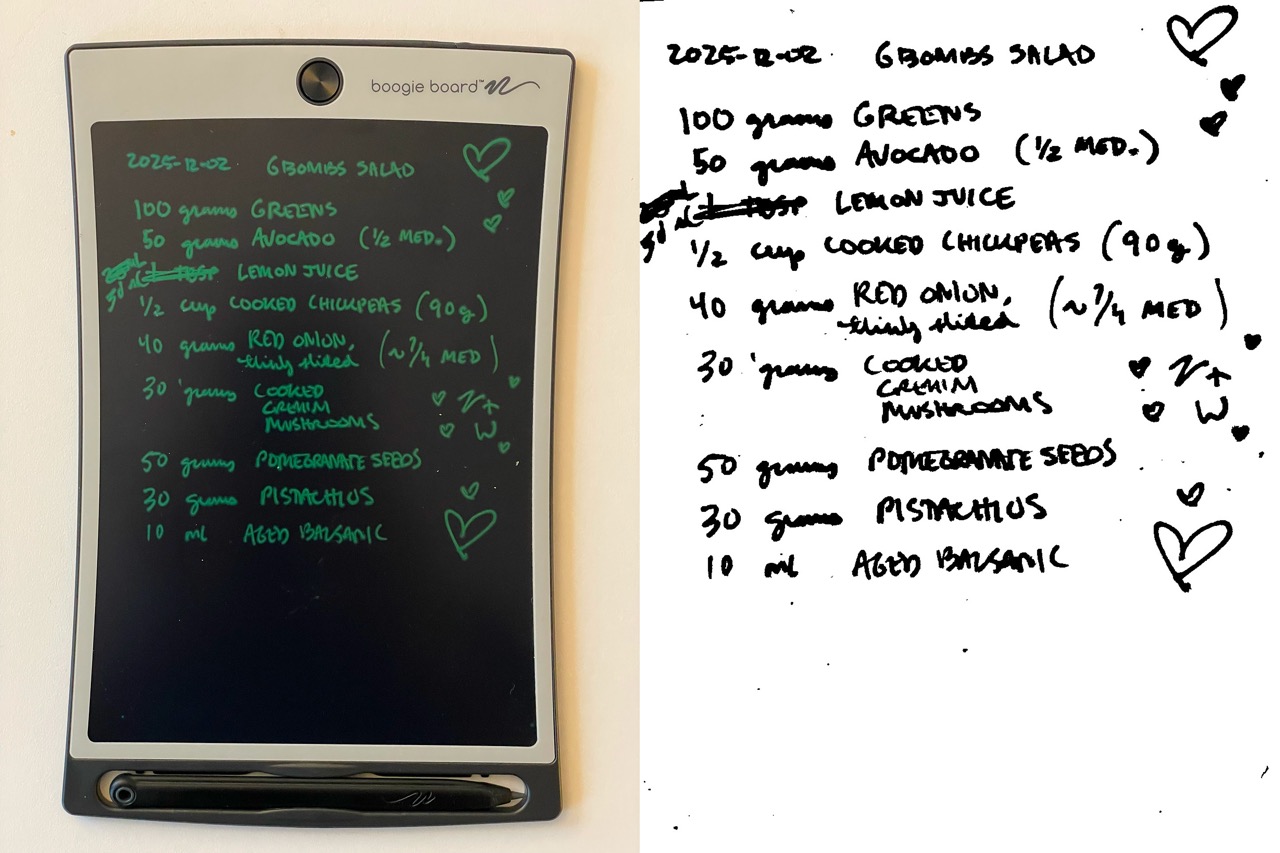 boogie board™
2025-12-02 GBOMBS SALAD
100 grams GREENS
50 grams AVOCADO (1/2 MED.)
LEMON JUICE
1/2 cup COOKED CHICKPEAS (90g)
40 grams RED ONION,
thinly sliced (~1/4 MED)
30 grams COOKED
CREMINI
MUSHROOMS
N +
W
50 grams POMEGRANATE SEEDS
30 grams PISTACHIOS
10 ml AGED BALSAMIC
2025-12-02 GBOMBS SALAD
100 grams GREENS
50 grams AVOCADO (1/2 MED.)
LEMON JUICE
1/2 cup COOKED CHICKPEAS (90g)
40 grams RED ONION,
thinly sliced (~1/4 MED)
30 grams COOKED
CREMINI
MUSHROOMS
N +
W
50 grams POMEGRANATE SEEDS
30 grams PISTACHIOS
10 ml AGED BALSAMIC